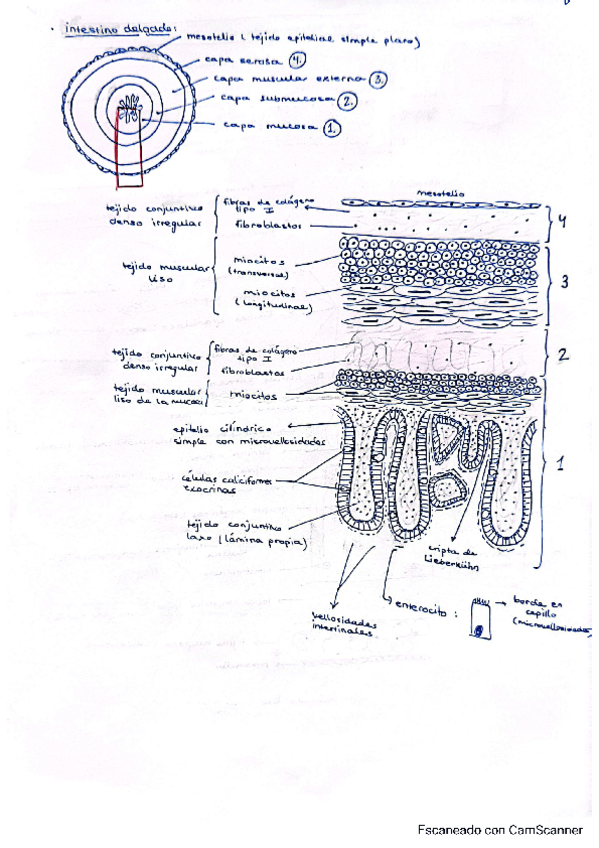 · intestino delgado:
mesotelio ( tejido epitelial simple plano)
capa serosa 4.
capa muscular externa 3.
capa submucosa 2.
capa mucosa 1.
mesotelio
tejido conjuntivo
denso irregular
fibras de colágeno
tipo I
fibroblastos
4
tejido muscular
liso
miocitos
(transversal)
miocitos
(longitudinal)
3
tejido conjuntivo
denso irregular
fibras de colágeno
tipo I
fibroblastos
2
tejido muscular
liso de la mucosa
miocitos
epitelio cilíndrico
simple con microvellosidades
células caliciformes
exocrinas
tejido conjuntivo
laxo (lámina propia)
1
cripta de
Lieberkühn
vellosidades
intestinales
enterocito :
borde en
cepillo
(microvellosidades)
Escaneado con CamScanner